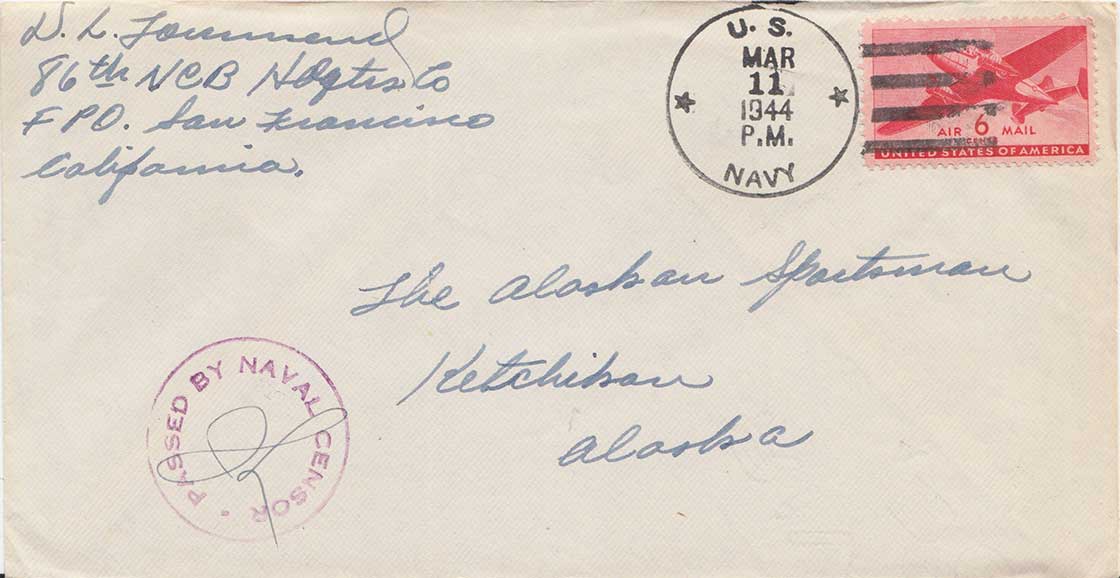 D. L. Townsend
86th NCB Hdqtrs Co
F P O. San Francisco
California.
U. S.
MAR
11
1944
P.M.
NAVY
AIR 6 MAIL
CENTS
UNITED STATES OF AMERICA
The Alaskan Sportsman
Ketchikan
Alaska
PASSED BY NAVAL CENSOR